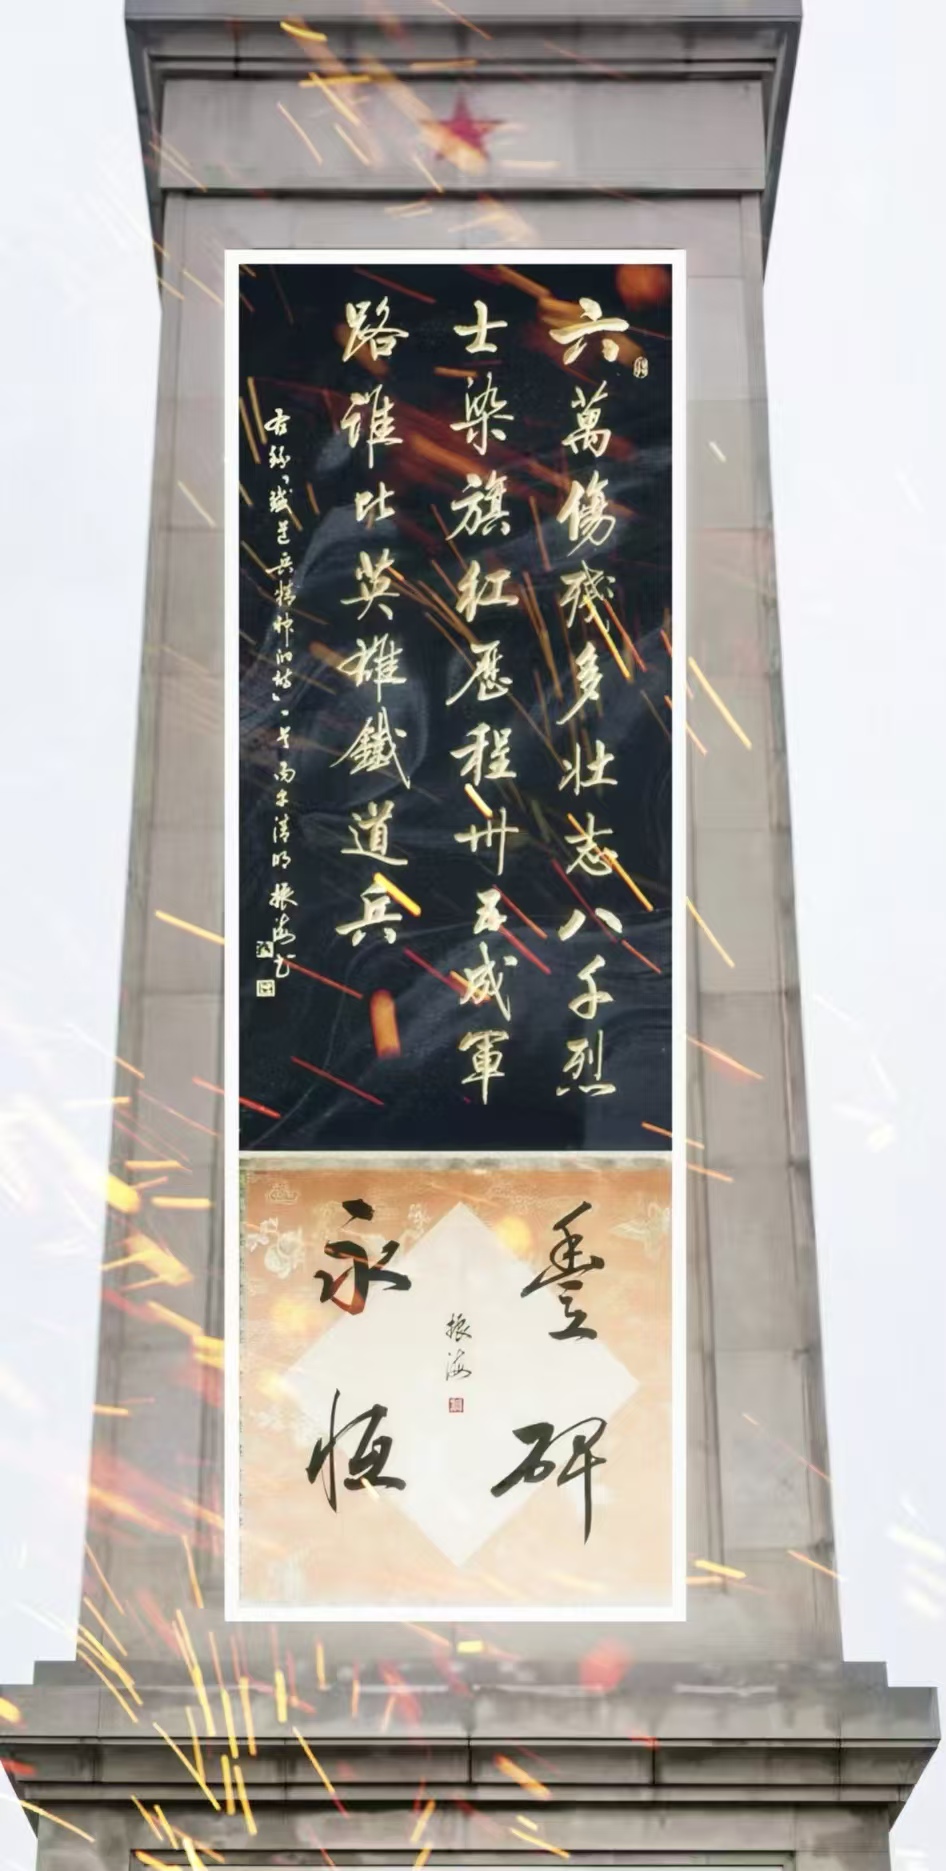 六萬傷残多壮志八千烈
士染旗紅歷程卅五成軍
路誰比英雄鐵道兵
右錄「鐵道兵精神的詩」一首丙午清明振海书
豐碑
永恒
振海